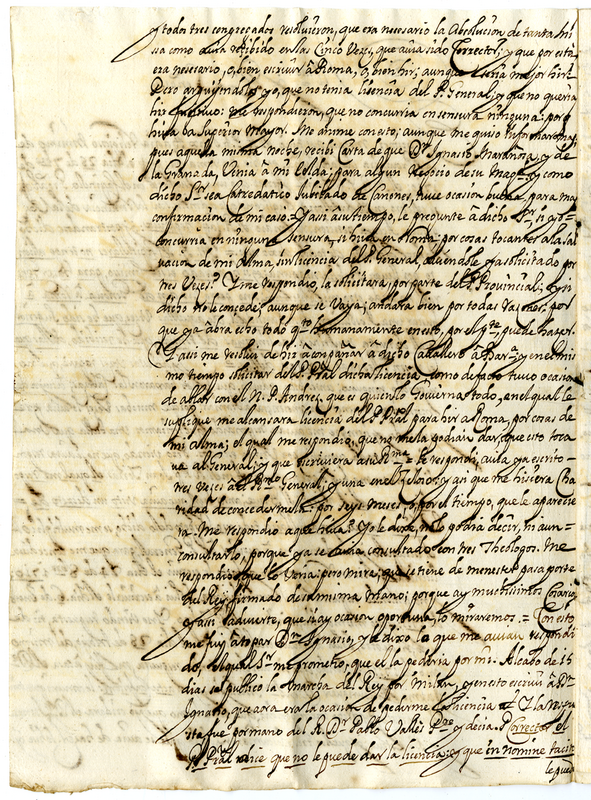 y todos tres congregados resolvieron, que era necesario la Absolucion de tanta Mi
sa como avia resibido en las Cinco Vezes, que avia sido Corrector; y que por esta
era nesesario, o bien escrivir à Roma, o bien hir; aunque seria mejor hir.
Pero arguyendoles yo, que no tenia lisensia del P. General; y que no queria
respondieron, que no concurria en sensura ninguna: porq
hiva ba Superior Mayor. Me anime con esto; aunque me quiso
pues aquella misma noche, resibi Carta de que Dn Ignasio Marañosa, y de
la Granada, Venia â mi Celda; para algun Negosio de su Magd. y como
dicho Sr. sea Catredatico Jubilado de Canones, tuve ocasion buena, para ma
confirmasion de mi caso = Y asi a su tiempo, le pregunte â dicho Sr. si yo =
concurria en ninguna sensura, si hiva en Roma: por cosas tocantes a la sal
vacion de mi Alma, sin licensia del P. General, aviendole ya solicitado por
tres Vezes? Y me respondio, la solicitara, por parte del P. Provincial; y si
dicho no le concede; aunque se Vaya; andara bien por todas rasones. por
que ya abra echo todo qto. humanamente en esto, por el pte. puede hazer.
Y asi me resolvi de hir â compañar â dicho Cavallero â Bara. y en el mis
mo tiempo solicitar del P. Pral dicha licensia; Como de facto tuvo ocasion
de allar con el N. P. Andres, que es quien lo Governa todo, en el qual le
suplique me alcansara licensia del P. Pral para hir a Roma, por cosas de
mi Alma; el qual me respondio, que no me la podian dar; que esto toca
va al General; y que escriviera a su Rma. = Le respondi, avia ya escrito =
tres Veses al Rmo General; y una en el Zeloso; y asi que me hisiera Cha
ridad de consedermela: por seys meses, o por el tiempo, que le aparecie
ra. Me respondio a que hiva? Yo le dixe, no lo podia desir, ni aun =
consultarlo, porque ya se avia consultado con tres Theologos. Me
respondio que lo Veria: pero mire; que se tiene de menester pasa porte
del Rey firmado de su misma Mano; porque ay muchissimos Cosarios;
y assi advierte, que si ay ocasion oportuna, lo miraremos. = Con esto
me fuy â topar Dn Ignasio, y le dixo lo que me avian respondi
do. el qual Sr. me prometio, que el la pediria por mi. Al cabo de 15
dias se publico la marcha del Rey por Milan, y en esto escrivi â Dn
Ignasio, que aora era la ocasion de pedirme la licensia Y la respu
esta fue por mano del R. Dr Pablo Valles Pre. y decia. P Corrector el
P. Pral dice que no le puede dar la licencia: y que en nomine tacito
le pued